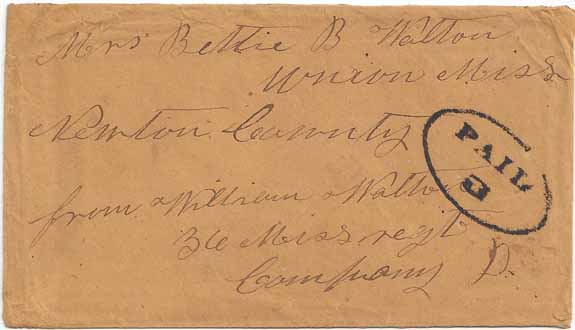 Mrs Bettie B Walton
Union Miss
Newton County
PAID
from William Walton
36 Miss. regt
Company D.